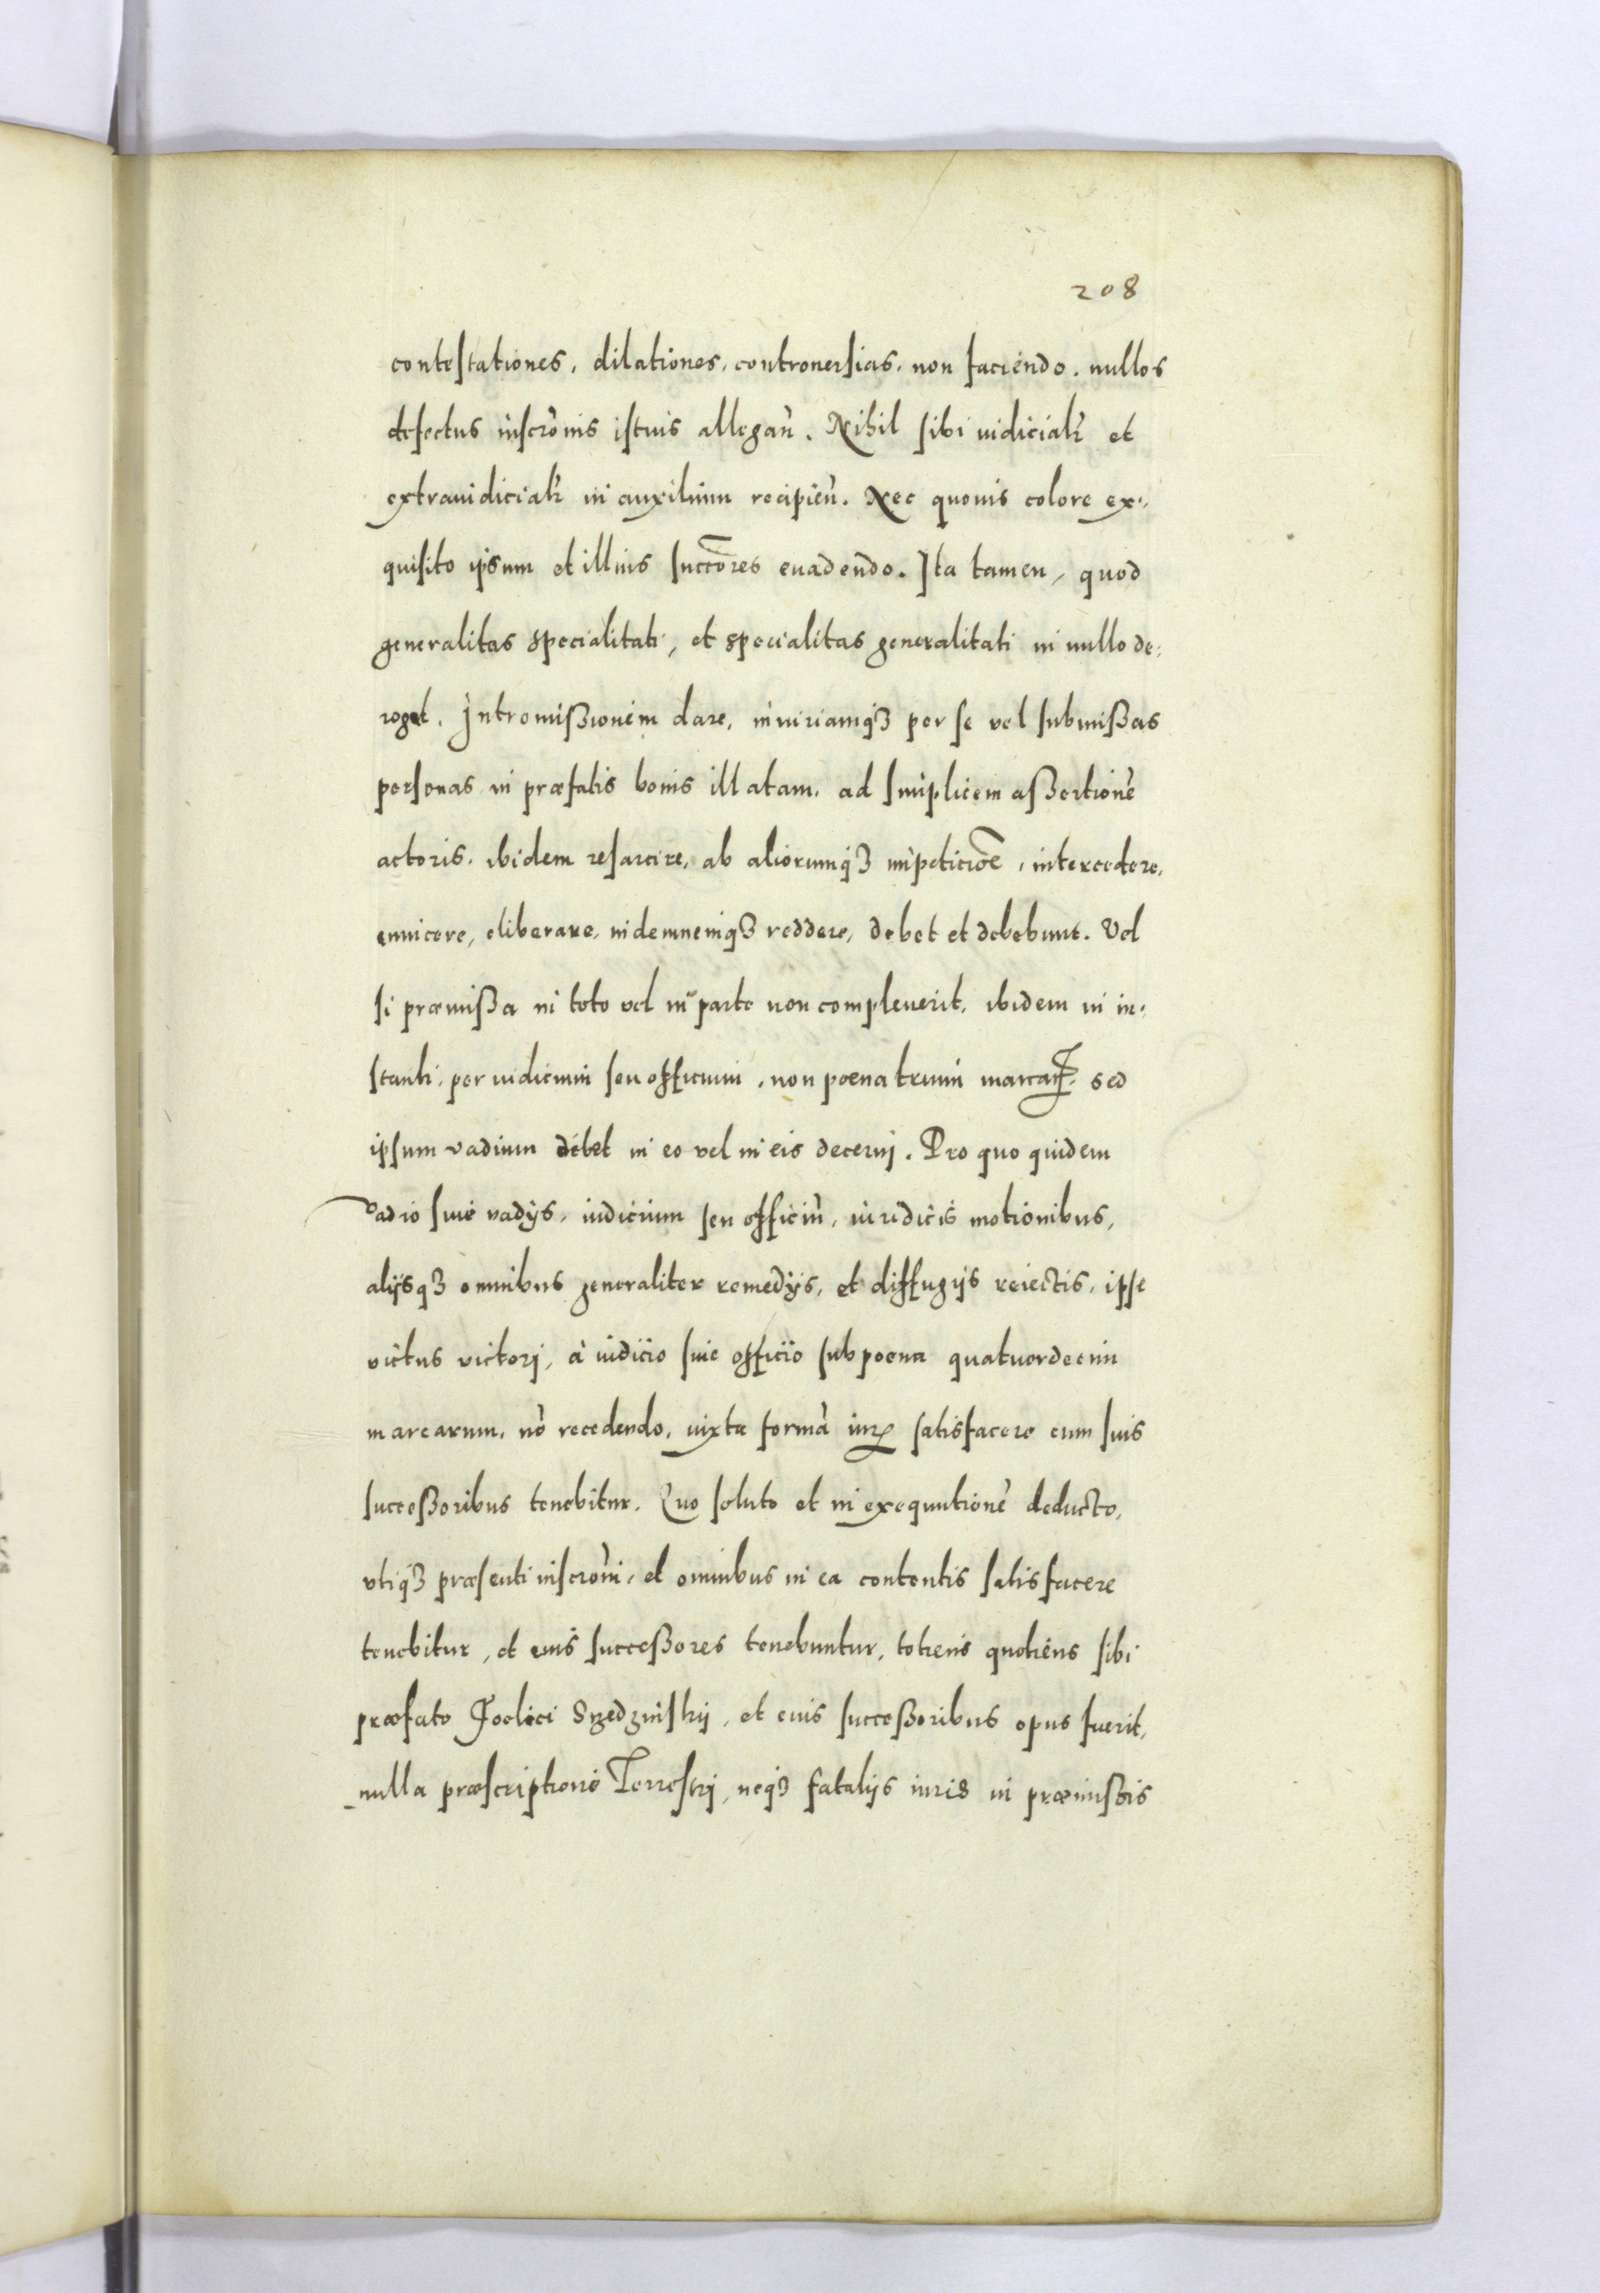 208
contestationes, dilationes, controuersias, non faciendo. nullos
defectus inscrõnis istius allegañ. Nihil sibi iudicialr et
extraiudicialr in auxilium recipieñ. Nec quouis colore ex-
quisito ipsum et illius succõres euadendo. Ita tamen, quod
generalitas specialitati, et specialitas generalitati in nullo de-
roget. Intromißionem dare, iniuriamqȝ per se vel submißas
personas in præfatis bonis illatam, ad simplicem aßertionē
actoris, ibidem resarcire, ab aliorumqȝ impeticiõe, intercedere,
euincere, eliberare, indemnemqȝ reddere, debet et debebunt. Vel
si præmißa in toto vel in parte non compleuerit, ibidem in in-
stanti, per iudicium seu officium, non poena trium marcarꝝ, sed
ipsum vadium debet in eo vel in eis decerni. Pro quo quidem
vadio siue vadijs, iudicium seu officiũ, iuridicis motionibus,
alijsqȝ omnibus generaliter remedijs, et diffugijs reiectis, ipse
victus victori, à iudicio siue officio sub poena quatuordecim
marcarum, nõ recedendo, iuxta formã iurꝭ satisfacere cum suis
succeßoribus tenebitur. Quo soluto et in exequutionē deducto,
vtiqȝ præsenti inscrõni, et omnibus in ea contentis satisfacere
tenebitur, et eius succeßores tenebuntur, totiens quotiens sibi
præfato Foelici Srzedzinskij, et eius succeßoribus opus fuerit,
nulla præscriptione Terrestrj, neqȝ fatalijs iuris in præmißis